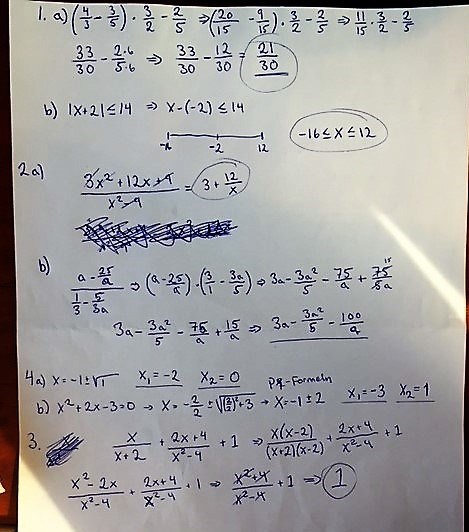 1. a) (4/3 - 3/5) · 3/2 - 2/5 ⇒ (20/15 - 9/15) · 3/2 - 2/5 ⇒ 11/15 · 3/2 - 2/5
33/30 - 2·6/5·6 ⇒ 33/30 - 12/30 = 21/30
b) |x+2| ≤ 14 ⇒ x-(-2) ≤ 14
-16 ≤ x ≤ 12
-2 12
2a) (3x² + 12x + 9)/(x² - 9) = 3 + 12/x
b) (a - 25/a)/(1/3 - 5/3a) ⇒ (a - 25/a) · (3/1 - 3a/5) ⇒ 3a - 3a²/5 - 75/a + 75/5a
15
3a - 3a²/5 - 75/a + 15/a ⇒ 3a - 3a²/5 - 100/a
4a) x = -1 ± √1 x₁ = -2 x₂ = 0
pq-Formeln
b) x² + 2x - 3 = 0 → x = -2/2 ± √((2/2)² + 3) → x = -1 ± 2 x₁ = -3 x₂ = 1
3. x/(x+2) + (2x+4)/(x²-4) + 1 ⇒ x(x-2)/((x+2)(x-2)) + (2x+4)/(x²-4) + 1
(x² - 2x)/(x²-4) + (2x+4)/(x²-4) + 1 ⇒ (x²+4)/(x²-4) + 1 ⇒ 1